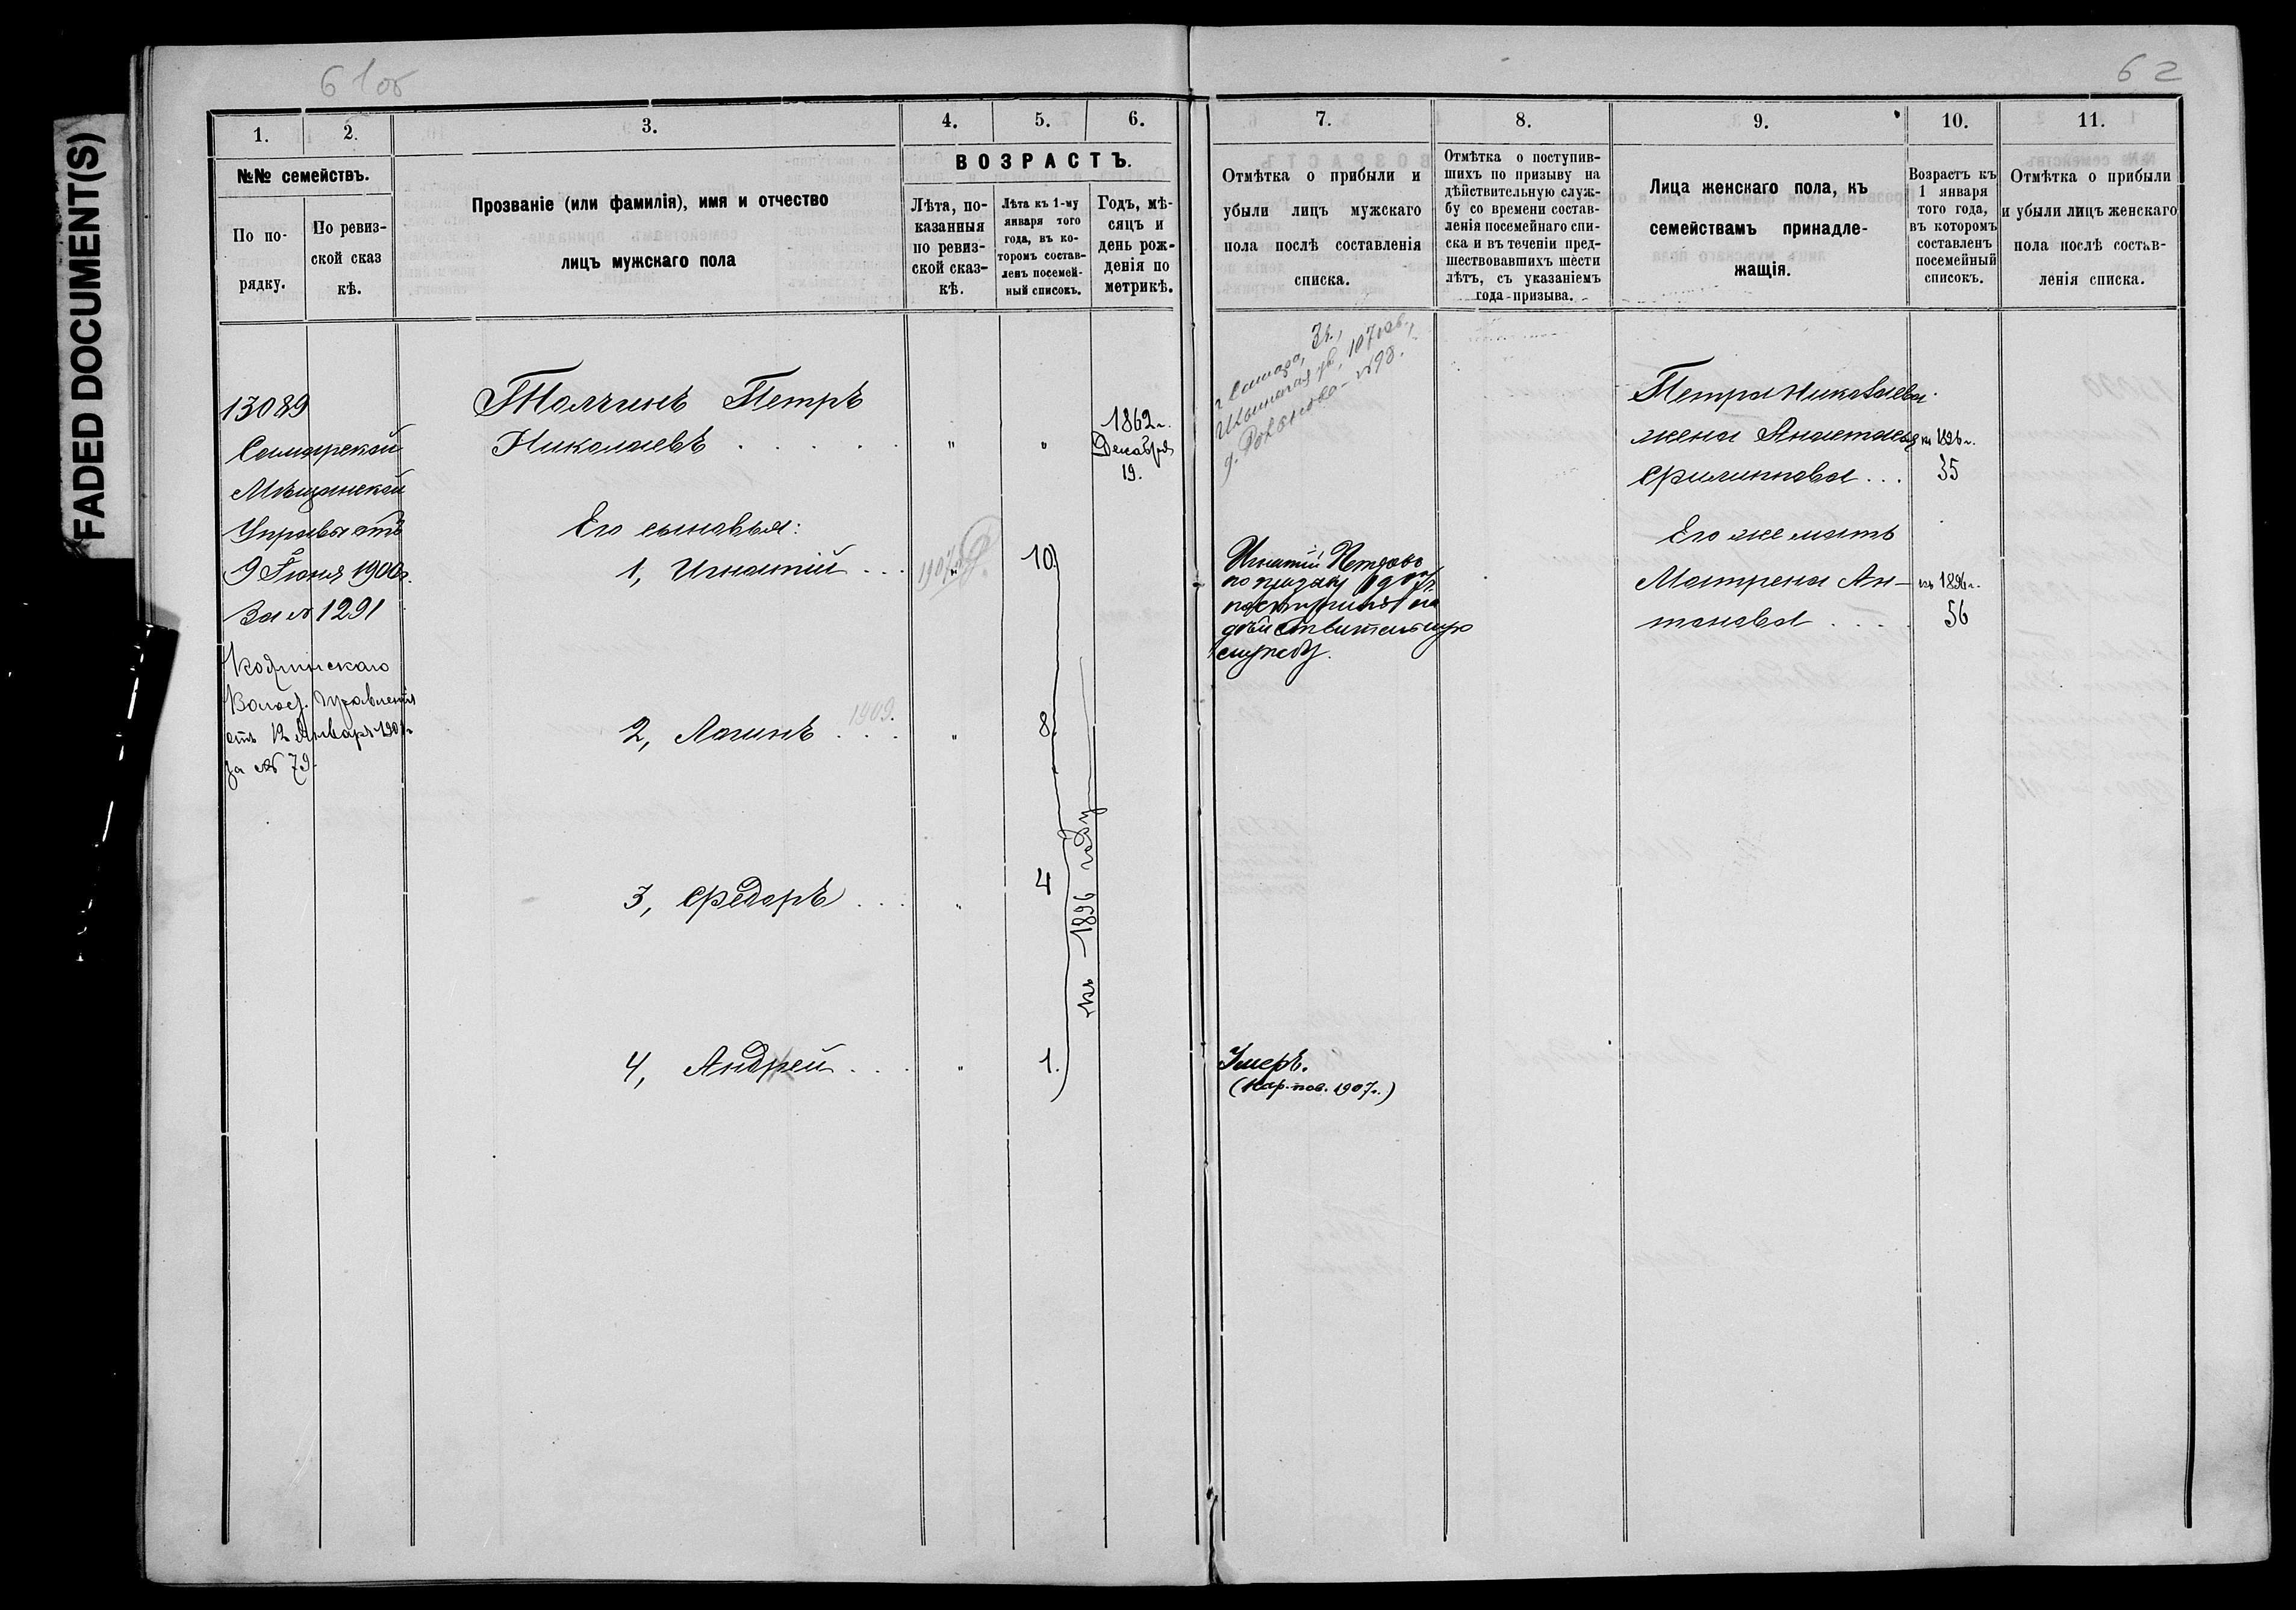 FADED DOCUMENT(S)
61об
62
1.
2.
3.
4.
5.
6.
7.
8.
9.
10.
11.
№№ семействъ.
По по-
рядку.
По ревиз-
ской сказ
кѣ.
Прозваніе (или фамилія), имя и отчество
лицъ мужскаго пола
ВОЗРАСТЪ.
Лѣта, по-
казанныя
по ревиз-
ской сказ-
кѣ.
Лѣта къ 1-му
января того
года, въ ко-
торомъ состав-
ленъ посемей-
ный списокъ.
Годъ, мѣ-
сяцъ и
день рож-
денія по
метрикѣ.
Отмѣтка о прибыли и
убыли лицъ мужскаго
пола послѣ составленія
списка.
Отмѣтка о поступив-
шихъ по призыву на
дѣйствительную служ-
бу со времени состав-
ленія посемейнаго спи-
ска и въ теченіи пред-
шествовавшихъ шести
лѣтъ, съ указаніемъ
года призыва.
Лица женскаго пола, къ
семействамъ принадле-
жащія.
Возрастъ къ
1 января
того года,
въ которомъ
составленъ
посемейный
списокъ.
Отмѣтка о прибыли
и убыли лицъ женскаго
пола послѣ состав-
ленія списка.
13089
Самарской
Мѣщанской
Управы отъ
9 Іюня 1900г.
За № 1291
Волост. Правленія
отъ 12 Января 1901г
за № 79.
Толчинъ Петръ
Николаевъ . . . . .
" "
1862г.
Декабря
19.
Его сыновья:
1, Игнатій . . .
1907г.
10.
2, Логинъ . . .
1909.
" 8.
3, Федоръ . . .
" 4
4, Андрей . . .
" 1.
къ 1896 году
г Самара, 3ч.,
107 кв.,
№98.
Игнатій Петровъ
по призыву 1907г.
поступилъ на
дѣйствительную
службу.
Умеръ.
(Кар. пов. 1907г.)
Петра Николаева
жена Анастасія
Филиппова . . .
къ 1896г.
35
Его же мать
Матрена Ан-
тонова . . . .
къ 1896г.
56